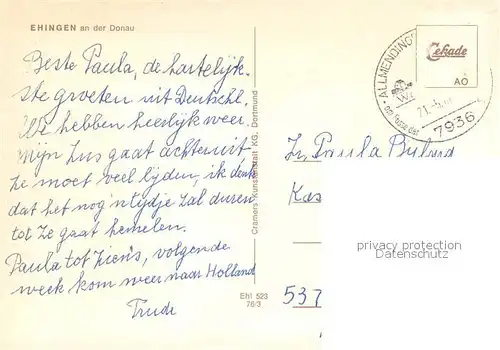 EHINGEN an der Donau
Beste Paula, de hartelijk-
ste groeten uit Deutschl.
We hebben heerlijk weer.
Mijn zus gaat achteruit,
ze moet veel lijden, ik denk
dat het nog 'n tijdje zal duren
tot ze gaat hemelen.
Paula tot ziens, volgende
week kom weer naar Holland
Trude
Ehi 523
76/3
Cramers Kunstanstalt KG, Dortmund
ALLMENDING
7936
Cekade
AO
Paula
privacy protection
Datenschutz
537